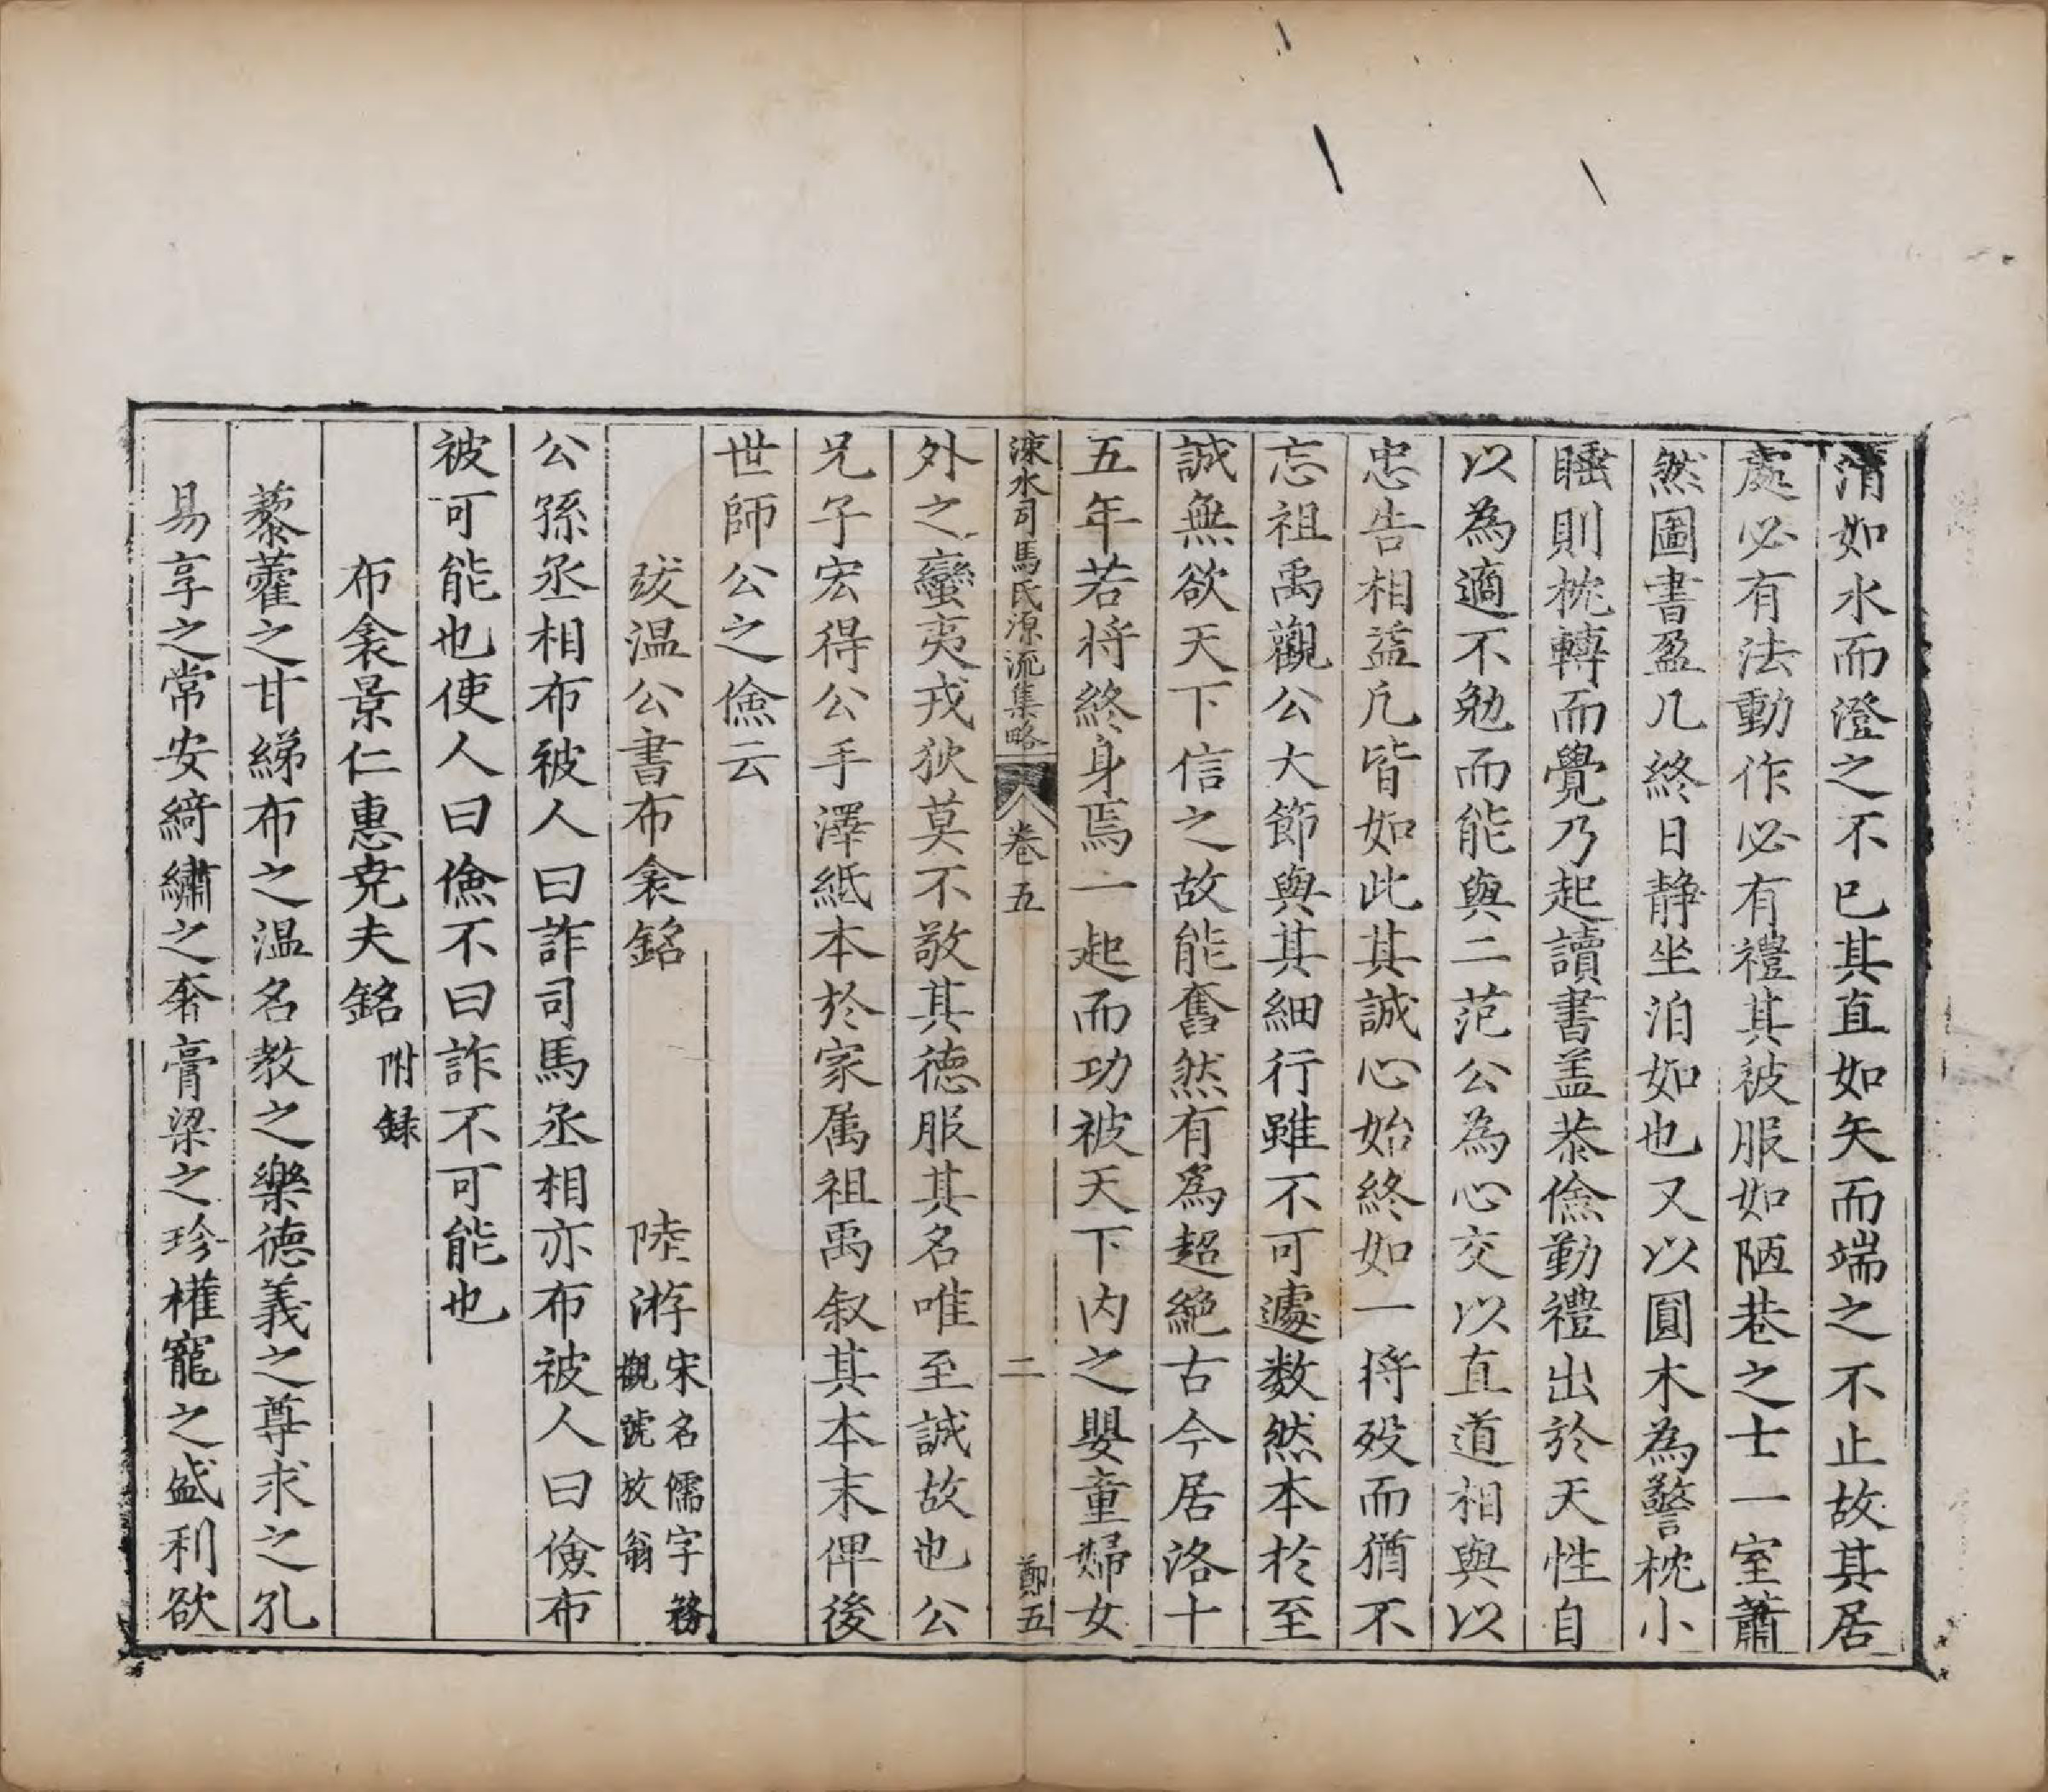 清如水而澄之不已其直如矢而端之不止故其居
處必有法動作必有禮其被服如陋巷之士一室蕭
然圖書盈几終日静坐泊如也又以圓木為警枕小
睡則枕轉而覺乃起讀書盖恭儉勤禮出於天性自
以為適不勉而能與二范公為心交以直道相與以
忠告相益凢皆如此其誠心始終如一将殁而猶不
忘祖禹觀公大節與其細行雖不可遽数然本於至
誠無欲天下信之故能奮然有爲超絶古今居洛十
五年若将終身焉一起而功被天下内之嬰童婦女
涑水司馬氏源流集略
卷五
二
鄭五
外之蠻夷戎狄莫不敬其德服其名唯至誠故也公
兄子宏得公手澤紙本於家属祖禹叙其本末俾後
世師公之儉云
跋温公書布衾銘
陸游
宋名儒字務
觀號放翁
公孫丞相布被人曰詐司馬丞相亦布被人曰儉布
被可能也使人曰儉不曰詐不可能也
布衾景仁惠尭夫銘
附録
藜藿之甘綈布之温名教之樂德義之尊求之孔
易享之常安綺繡之奢膏梁之珍權寵之盛利欲